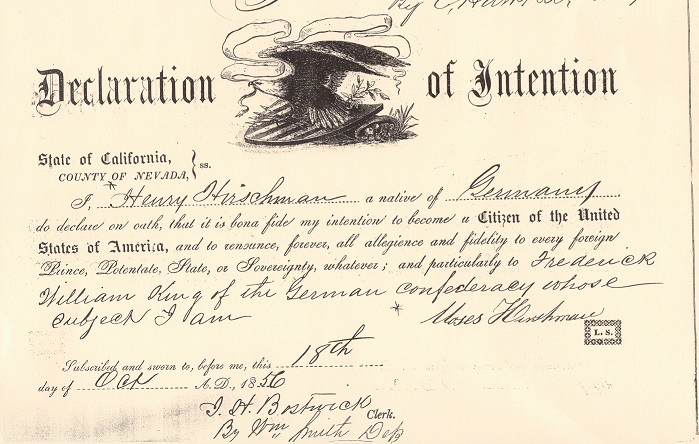 By
Declaration of Intention
State of California,
COUNTY OF NEVADA, } ss.
I, Henry Hirschman a native of Germany
do declare on oath, that it is bona fide my intention to become a Citizen of the United
States of America, and to renounce, forever, all allegience and fidelity to every foreign
Prince, Potentate, State, or Sovereignty, whatever; and particularly to Frederick
William King of the German confederacy whose
subject I am * Moses Hirshman
L. S.
Subscribed and sworn to, before me, this 18th
day of Oct A. D., 1856
J. H. Bostwick Clerk.
By Wm Smith Dep